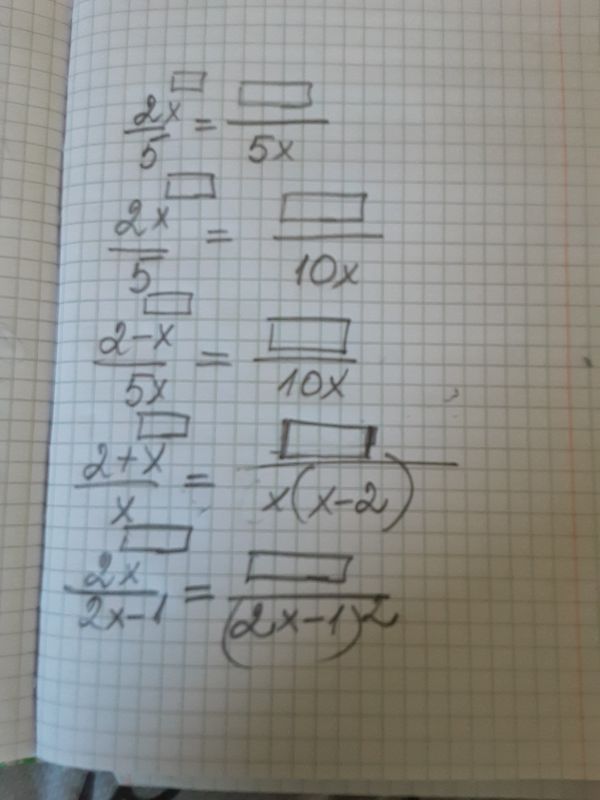 2x/5 □ = □/5x
2x/5 □ = □/10x
2-x/5x □ = □/10x
2+x/x □ = □/x(x-2)
2x/2x-1 □ = □/(2x-1)2